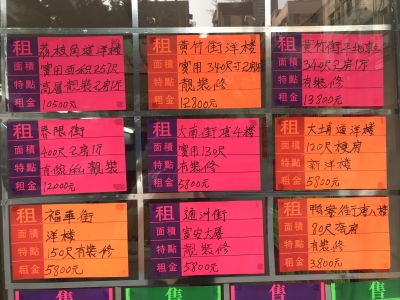 租 荔枝角道洋楼
面積 實用面积257尺
特點 高層靓装2房1厅
租金 10500元
租 黄竹街洋楼
面積 實用340尺2房
特點 靓裝修
租金 12800元
租 黄竹街
面積 340尺2房1厅
特點 有裝修
租金 13800元
租 界限街
面積 400尺2房1厅
特點 靓裝
租金 12000元
租 大南街唐4楼
面積 實用130尺
特點 有裝修
租金 5800元
租 大埔道洋楼
面積 120尺
特點 新洋楼
租金 5800元
租 福華街
面積 洋楼
特點 150尺有裝修
租金 5800元
租 通洲街
面積 富安大厦
特點 靓裝修
租金 5800元
租 鴨寮街唐人楼
面積 80尺套房
特點 有裝修
租金 3800元
售
售
售
售